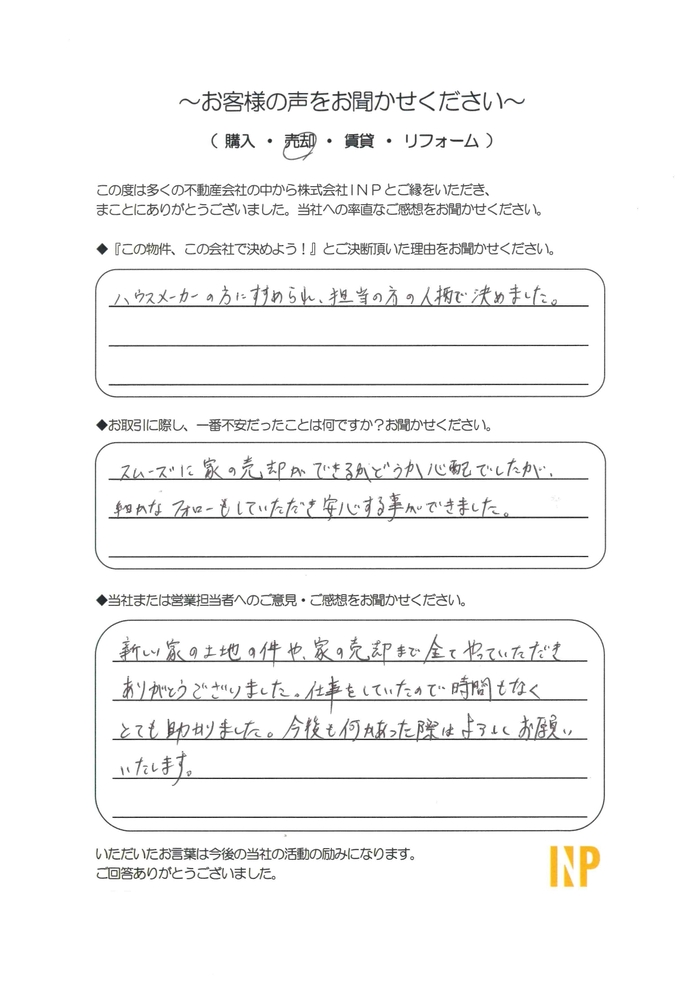 ～お客様の声をお聞かせください～
（ 購入 ・ 売却 ・ 賃貸 ・ リフォーム ）
この度は多くの不動産会社の中から株式会社ＩＮＰとご縁をいただき、
まことにありがとうございました。当社への率直なご感想をお聞かせください。
◆『この物件、この会社で決めよう！』とご決断頂いた理由をお聞かせください。
ハウスメーカーの方にすすめられ、担当の方の人柄で決めました。
◆お取引に際し、一番不安だったことは何ですか？お聞かせください。
スムーズに家の売却ができるかどうか心配でしたが、
細かなフォローもしていただき安心する事ができました。
◆当社または営業担当者へのご意見・ご感想をお聞かせください。
新しい家の土地の件や、家の売却まで全てやっていただき
ありがとうございました。仕事をしていたので時間もなく
とても助かりました。今後も何かあった際はよろしくお願い
いたします。
いただいたお言葉は今後の当社の活動の励みになります。
ご回答ありがとうございました。
INP